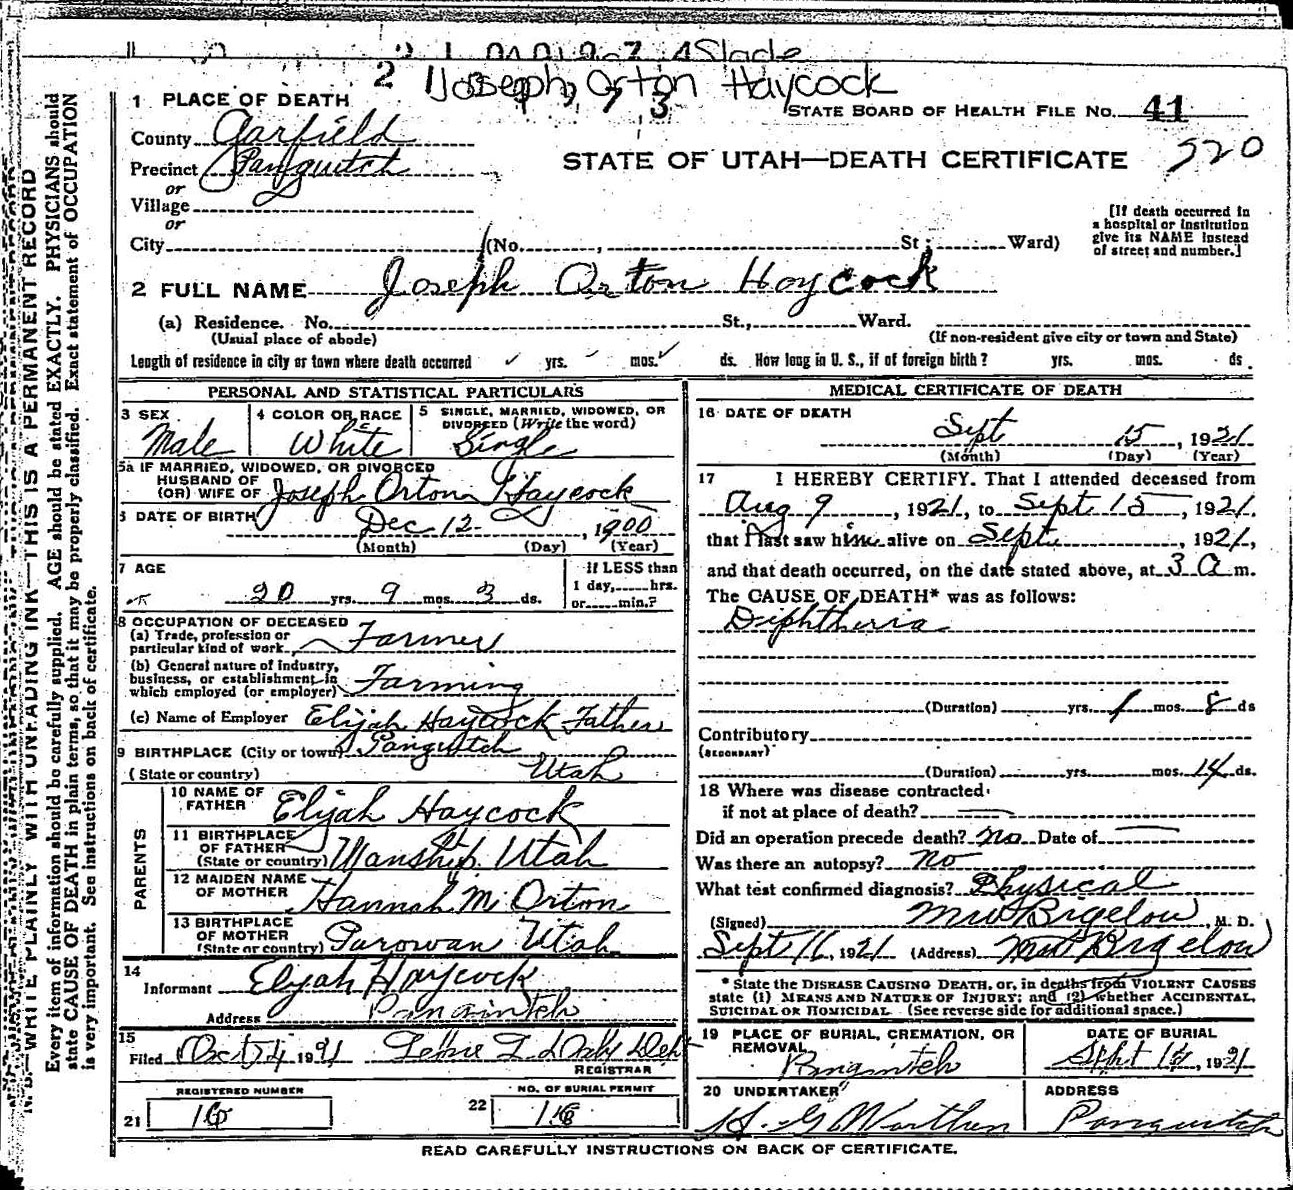 Slade
2 Joseph Orton Haycock
1 PLACE OF DEATH
STATE BOARD OF HEALTH FILE NO. 41
County Garfield
STATE OF UTAH—DEATH CERTIFICATE 520
Precinct Panguitch
or
Village
or
City (No. , St ; Ward)
[If death occurred in
a hospital or institution
give its NAME instead
of street and number.]
2 FULL NAME Joseph Orton Haycock
(a) Residence. No. St., Ward.
(Usual place of abode) (If non-resident give city or town and State)
Length of residence in city or town where death occurred yrs. mos. ds. How long in U. S., if of foreign birth? yrs. mos. ds.
PERSONAL AND STATISTICAL PARTICULARS
3 SEX Male
4 COLOR OR RACE White
5 SINGLE, MARRIED, WIDOWED, OR
DIVORCED (Write the word)
Single
5a IF MARRIED, WIDOWED, OR DIVORCED
HUSBAND OF
(OR) WIFE OF Joseph Orton Haycock
6 DATE OF BIRTH Dec 12 , 1900
(Month) (Day) (Year)
7 AGE
20 yrs. 9 mos. 3 ds.
If LESS than
1 day, hrs.
or min.?
8 OCCUPATION OF DECEASED
(a) Trade, profession or
particular kind of work Farmer
(b) General nature of industry,
business, or establishment in
which employed (or employer) Farming
(c) Name of Employer Elijah Haycock Father
9 BIRTHPLACE (City or town) Panguitch
(State or country) Utah
PARENTS
10 NAME OF
FATHER Elijah Haycock
11 BIRTHPLACE
OF FATHER
(State or country) Wanship, Utah
12 MAIDEN NAME
OF MOTHER Hannah M. Orton
13 BIRTHPLACE
OF MOTHER
(State or country) Parowan Utah
14
Informant Elijah Haycock
Address Panguitch
15
Filed Oct 4 1921
REGISTRAR
REGISTERED NUMBER
21 16
NO. OF BURIAL PERMIT
22 16
MEDICAL CERTIFICATE OF DEATH
16 DATE OF DEATH
Sept 15 , 1921
(Month) (Day) (Year)
17 I HEREBY CERTIFY. That I attended deceased from
Aug 9 , 1921, to Sept 15 , 1921.
that I last saw him alive on Sept. , 1921,
and that death occurred, on the date stated above, at 3 a m.
The CAUSE OF DEATH* was as follows:
Diphtheria
(Duration) yrs. 1 mos. 8 ds
Contributory
(SECONDARY)
(Duration) yrs. mos. 14 ds.
18 Where was disease contracted
if not at place of death?
Did an operation precede death? no Date of
Was there an autopsy? No
What test confirmed diagnosis? Physical
(Signed) Bigelow , M. D.
Sept 16, 1921 (Address) Bigelow
* State the DISEASE CAUSING DEATH, or, in deaths from VIOLENT CAUSES
state (1) MEANS AND NATURE OF INJURY; and (2) whether ACCIDENTAL,
SUICIDAL OR HOMICIDAL. (See reverse side for additional space.)
19 PLACE OF BURIAL, CREMATION, OR
REMOVAL
Panguitch
DATE OF BURIAL
Sept 16, 1921
20 UNDERTAKER
H. G. Worthen
ADDRESS
Panguitch
READ CAREFULLY INSTRUCTIONS ON BACK OF CERTIFICATE.
N. B.—WRITE PLAINLY WITH UNFADING INK—THIS IS A PERMANENT RECORD
Every item of information should be carefully supplied. AGE should be stated EXACTLY. PHYSICIANS should
state CAUSE OF DEATH in plain terms, so that it may be properly classified. Exact statement of OCCUPATION
is very important. See instructions on back of certificate.